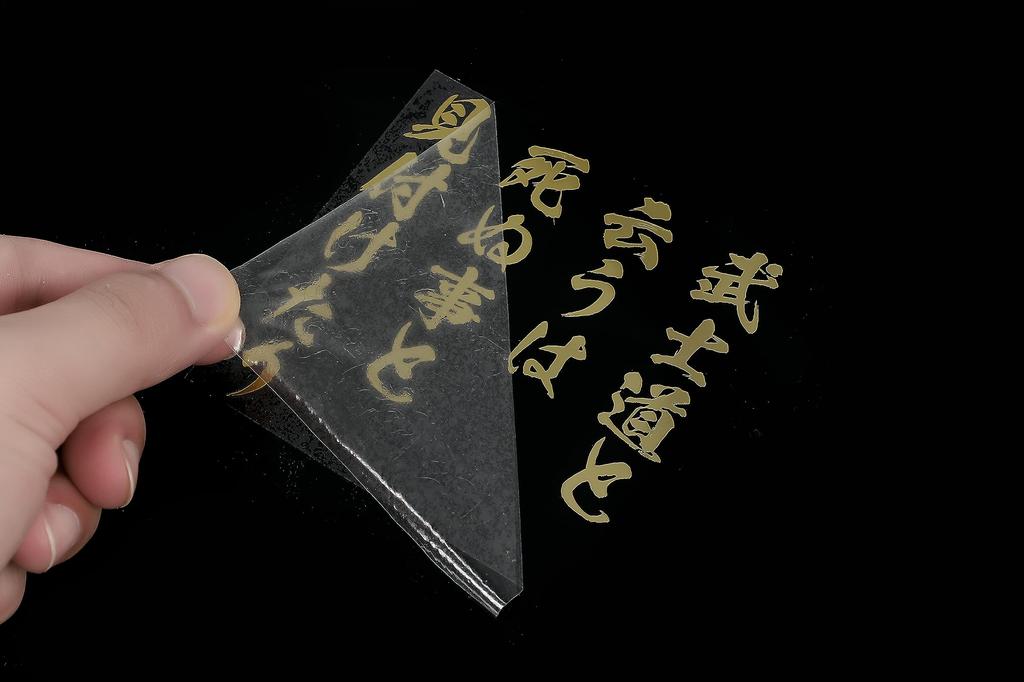 武士道と
云うは
死ぬ事と
見付けたり